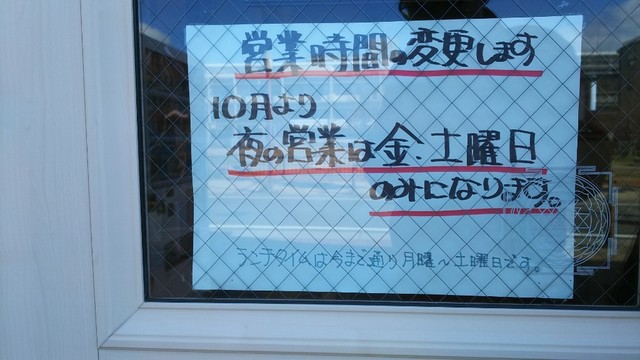 営業時間の変更します
10月より
夜の営業は金、土曜日
のみになります。
ランチタイムは今まで通り月曜～土曜日です。